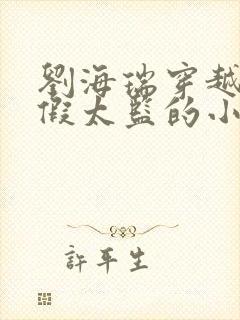 劉海瑞穿越
假太監的小
許平生